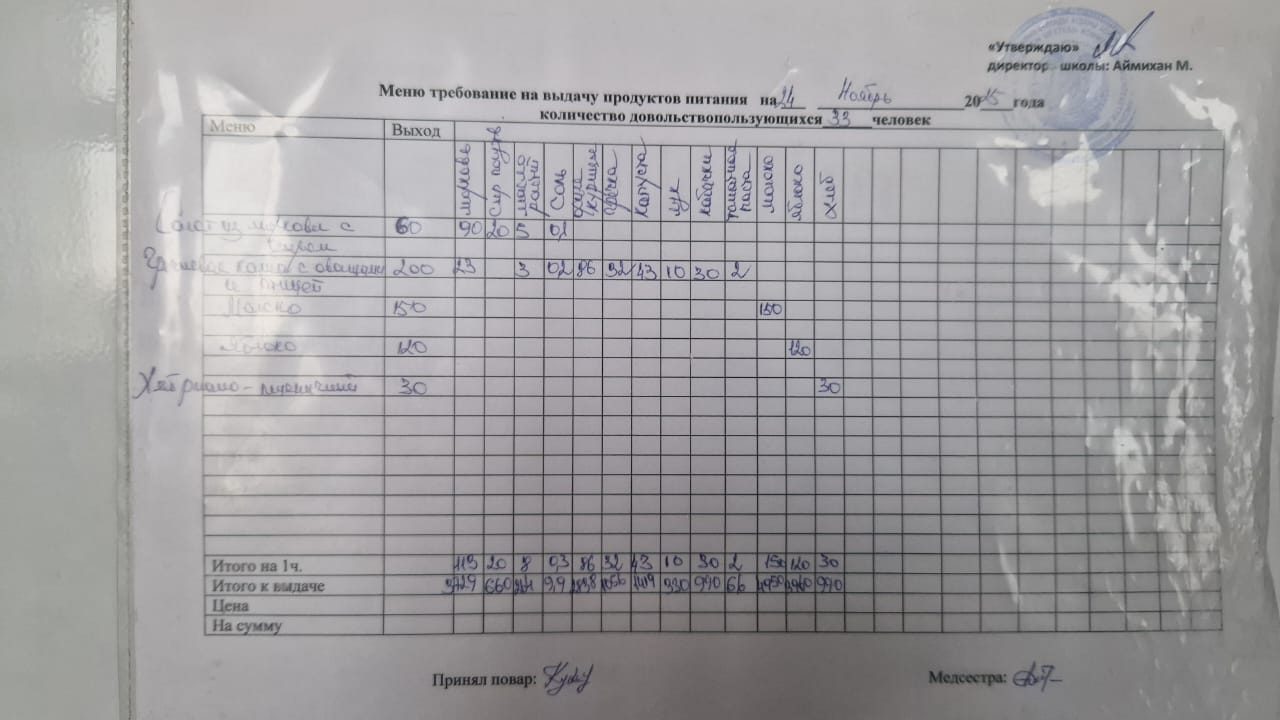 «Утверждаю»
директор школы: Аймихан М.
Меню требование на выдачу продуктов питания на 24 Ноябрь 2025 года
количество довольствопользующихся 33 человек
Меню Выход
морковь масло растит Соль курицы гречка капуста лук кабачки томатная паста молоко яблоко хлеб
Салат из моркови с 60 90 20 5 0,2
сыром
Гречневая каша с овощами 200 23 3 02 86 32 43 10 30 2
и птицей
Молоко 150 150
Яблоко 120 120
Хлеб ржано-пшеничный 30 30
Итого на 1ч. 113 20 8 0,3 86 32 43 10 30 2 150 120 30
Итого к выдаче 3729 660 264 9,9 2838 1056 1419 330 990 66 4950 3960 990
Цена
На сумму
Принял повар: Медсестра: